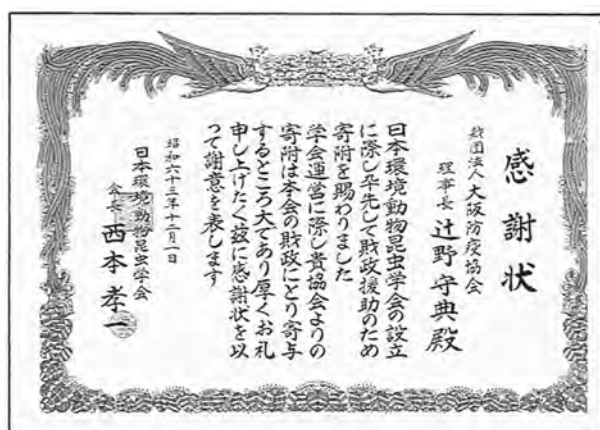 感謝状
財団法人大阪防疫協会
理事長 辻野守典殿
日本環境動物昆虫学会の設立
に際し卒先して財政援助のため
寄附を賜わりました
学会運営に際し貴協会よりの
寄附は本会の財政にとり寄与
するところ大であり厚くお礼
申し上げたく玆に感謝状を以
って謝意を表します
昭和六十三年十二月一日
日本環境動物昆虫学会
会長 西本孝一